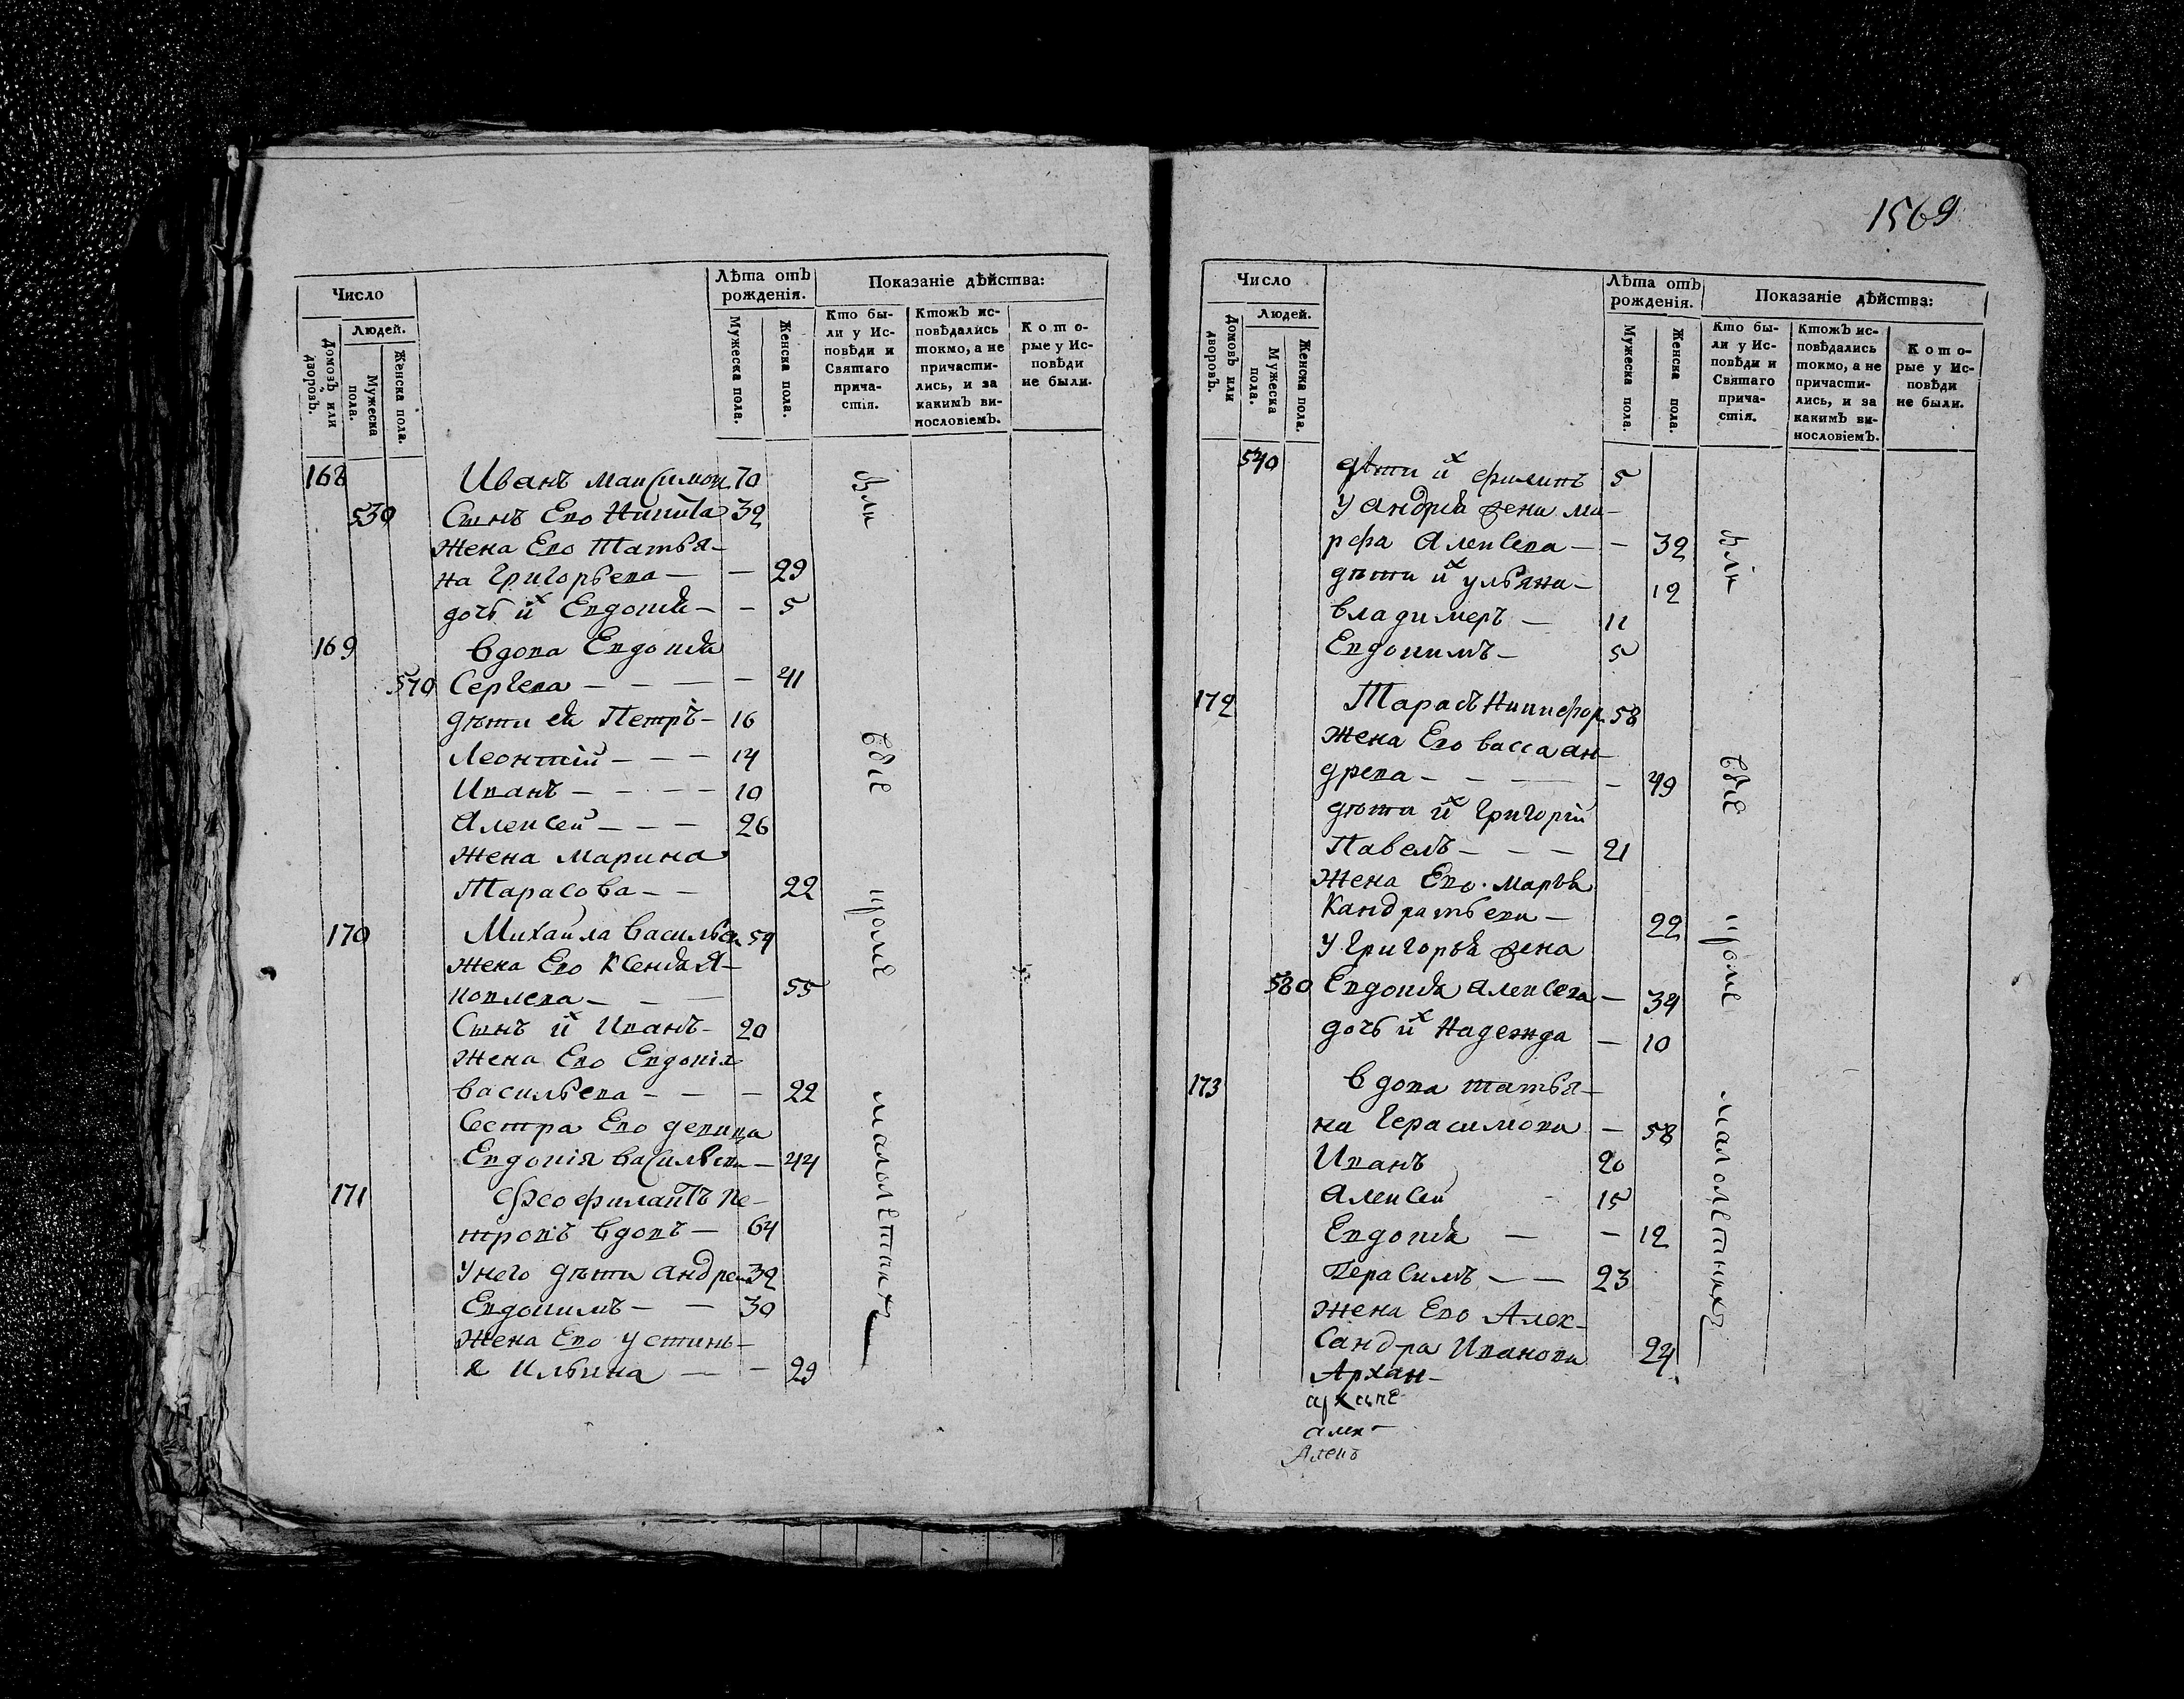 Число
Лѣта отъ рожденія.
Показаніе дѣйства:
Людей.
Домовъ или дворовъ.
Мужеска пола.
Женска пола.
Мужеска пола.
Женска пола.
Кто бы-
ли у Ис-
повѣди и
Святаго
прича-
стія.
Ктожъ ис-
повѣдались
токмо, а не
причасти-
лись, и за
какимъ ви-
нословіемъ.
Кото-
рые у Ис-
повѣди
не были.
168 Иванъ Максимов 70
530 Сынъ Его Никита 32
Жена Его Татья-
на Григорьева — — 29
дочь их Евдокия — — 5
169 Вдова Евдокия
570 Сергеева — — — — 41
дѣти ея Петръ — 16
Леонтій — — — 14
Иванъ — — — — 10
Алексей — — — 26
Жена Марина
Тарасова — — 22
170 Михайла Васильев 59
Жена Его Ксения Я-
ковлева — — — 55
Сынъ их Иванъ — 20
Жена Его Евдокія
Васильева — — — 22
Сестра Его девица
Евдокія Васильева — 44
171 Феофилактъ Пе-
тровъ вдовъ — 64
У него дѣти Андрей 32
Евдокимъ — — 30
Жена Его Устинь-
я Ильина — — 29
все
кроме
малолѣтних
1569
Число
Лѣта отъ рожденія.
Показаніе дѣйства:
Людей.
Домовъ или дворовъ.
Мужеска пола.
Женска пола.
Мужеска пола.
Женска пола.
Кто бы-
ли у Ис-
повѣди и
Святаго
прича-
стія.
Ктожъ ис-
повѣдались
токмо, а не
причасти-
лись, и за
какимъ ви-
нословіемъ.
Кото-
рые у Ис-
повѣди
не были.
540 дѣти их Филипъ 5
У Андрея жена Ма-
рфа Алексева — — 32
дѣти их Ульяна — 12
Владимеръ — 11
Евдокимъ — 5
172 Тарасъ Никифор. 58
Жена Его Васса Ан-
древа — — — — 49
дѣти их Григорій
Павелъ — — — 21
Жена Его Марья
Кандратьева — 22
У Григорья жена
580 Евдокия Алексева — 34
дочь их Надежда — 10
173 Вдова Татья-
на Герасимова — 58
Иванъ 20
Алексей 15
Евдокия — — 12
Герасимъ — — 23
Жена Его Алек-
сандра Иванова 24
Архан-
архане
алек-
все
кроме
малолѣтнихъ